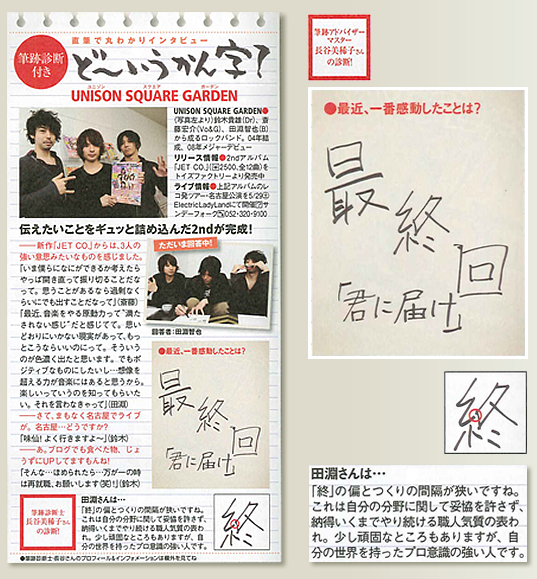 直筆で丸わかりインタビュー
筆跡診断
付き
ど〜いうかん字?
ユニゾン スクエア ガーデン
UNISON SQUARE GARDEN
UNISON SQUARE GARDEN●
(写真左より)鈴木貴雄(Dr)、斎
藤宏介(Vo&G)、田淵智也(B)
から成るロックバンド。04年結
成、08年メジャーデビュー
リリース情報●2ndアルバム
『JET CO.』(2500、全12曲)を
トイズファクトリーより発売中
ライブ情報●上記アルバムのレ
コ発ツアー・名古屋公演を5/29
ElectricLadyLandにて開催 サ
ンデーフォーク 052・320・9100
伝えたいことをギュッと詰め込んだ2ndが完成!
――新作『JET CO.』からは、3人の
強い意思みたいなものを感じました。
「いま僕らになにができるか考えたら
やっぱ開き直って振り切ることだな
って。思うことがあるなら過剰なく
らいにでも出すことだなって」(斎藤)
「最近、音楽をやる原動力って“満た
されない感じ”だと感じてて。思い
どおりにいかない現実があって、もっ
とこうならいいのにって。そういう
のが色濃く出たと思います。でもポ
ジティブなものにしたいし…想像を
超える力が音楽にはあると思うから。
楽しいっていうのを知ってもらいた
い。それを言わなきゃって」(田淵)
――さて、まもなく名古屋でライブ
が。名古屋…どうですか?
「味仙! よく行きますよ〜」(鈴木)
――あ。ブログでも食べた物、じょ
うずにUPしてますもんね!
「そんな…ほめられたら…万が一の時
は再就職、お願いします(笑)!」(鈴木)
ただいま回答中!
回答者:田淵智也
●最近、一番感動したことは?
最
終
回
「君に届け」
筆跡診断士
長谷美稀子さん
の診断!
田淵さんは…
「終」の偏とつくりの間隔が狭いですね。
これは自分の分野に関して妥協を許さず、
納得いくまでやり続ける職人気質の表わ
れ。少し頑固なところもありますが、自
分の世界を持ったプロ意識の強い人です。
終
●筆跡診断士・長谷さんのプロフィール&インフォメーションは欄外を見てね
筆跡アドバイザー
マスター
長谷美稀子さん
の診断!
●最近、一番感動したことは?
最
終
回
「君に届け」
終
田淵さんは…
「終」の偏とつくりの間隔が狭いですね。
これは自分の分野に関して妥協を許さず、
納得いくまでやり続ける職人気質の表わ
れ。少し頑固なところもありますが、自
分の世界を持ったプロ意識の強い人です。